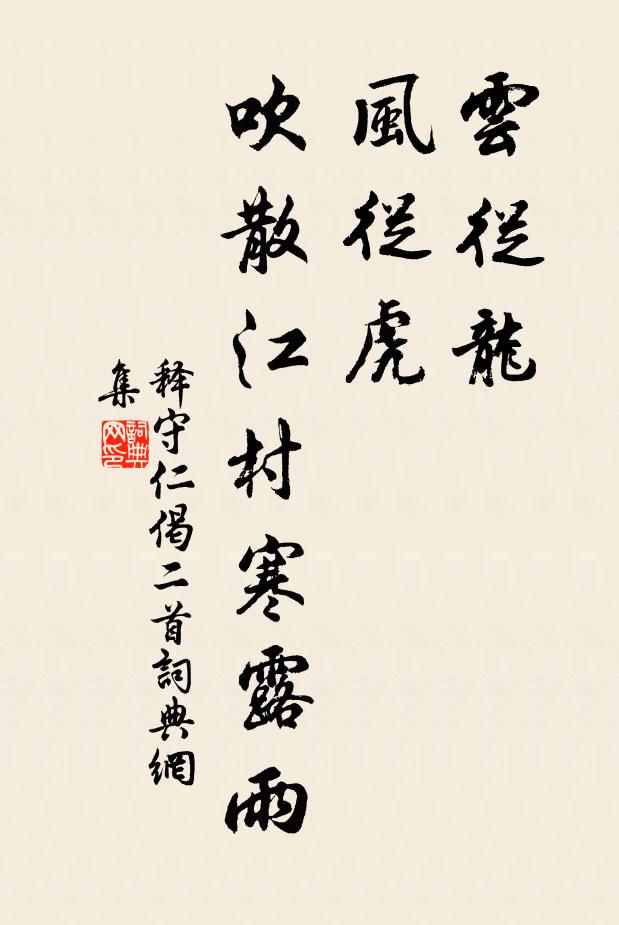 雲從龍
風從虎
吹散江村寒露雨
释守仁偈二首詞典網
集
詞典
网印